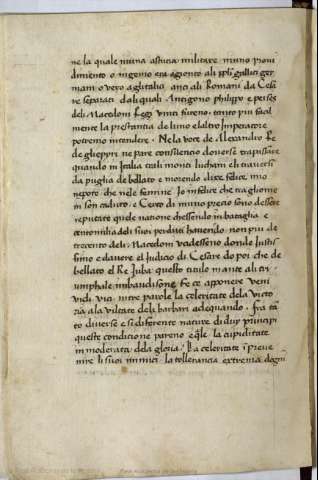 ne la quale niuna astucia militare niuno provi
dimento o ingenio era agionto ali ppli gallici ger
mani o vero aglitalia ano ali Romani da Cesa
re separati da li quali Antigono philippo e perses
deli Macedoni Reggi vinti fureno, tanto piu facil
mente la prestantia de luno e laltro Imperatore
potremo intendere. Ne la voce de Alexandro Re
de gli eppiri ne pare consilentio doverse trapassare
quando in Italia tra li monti luchani eli traversi
da puglia de bellato e morendo dixe felice mio
nepote che ne le femine Io infelice che tra gliome
in son caduto, e Certo di niuno precio sono dessere
reputate quele natione chessendo in bataglia e
centomilia deli suoi perditi havendo non piu de
trecento deli Macedoni
simo e da vere el Iudicio di Cesare do poi che de
bellato el Re Juba questo titulo
umphale imbandisone fece apponere veni
vidi vici. ni tre parole la celeritate dela victo
ria ala viltate deli barbari adequando. fra tā
to diverse e si differente nature di dup principi
queste condicione pareno eq̄le la cupiditate
in moderata dela gloria. La celeritate ī preve
nire li suoi inimici. la tollerancia extrema dogni